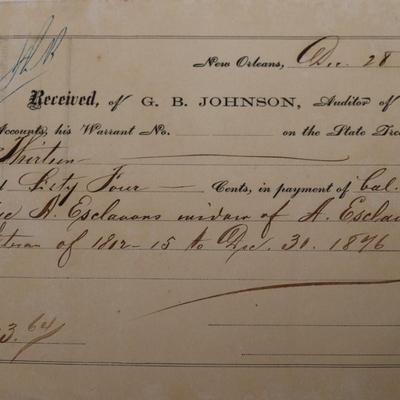 New Orleans, Dec 28
Received, of G. B. JOHNSON, Auditor of
Accounts, his Warrant No. on the State Trea
Thirteen
Sixty Four Cents, in payment of bal.
A. Esclavons widow of A. Escla
of 1812-15 to Dec. 30. 1876
3.64